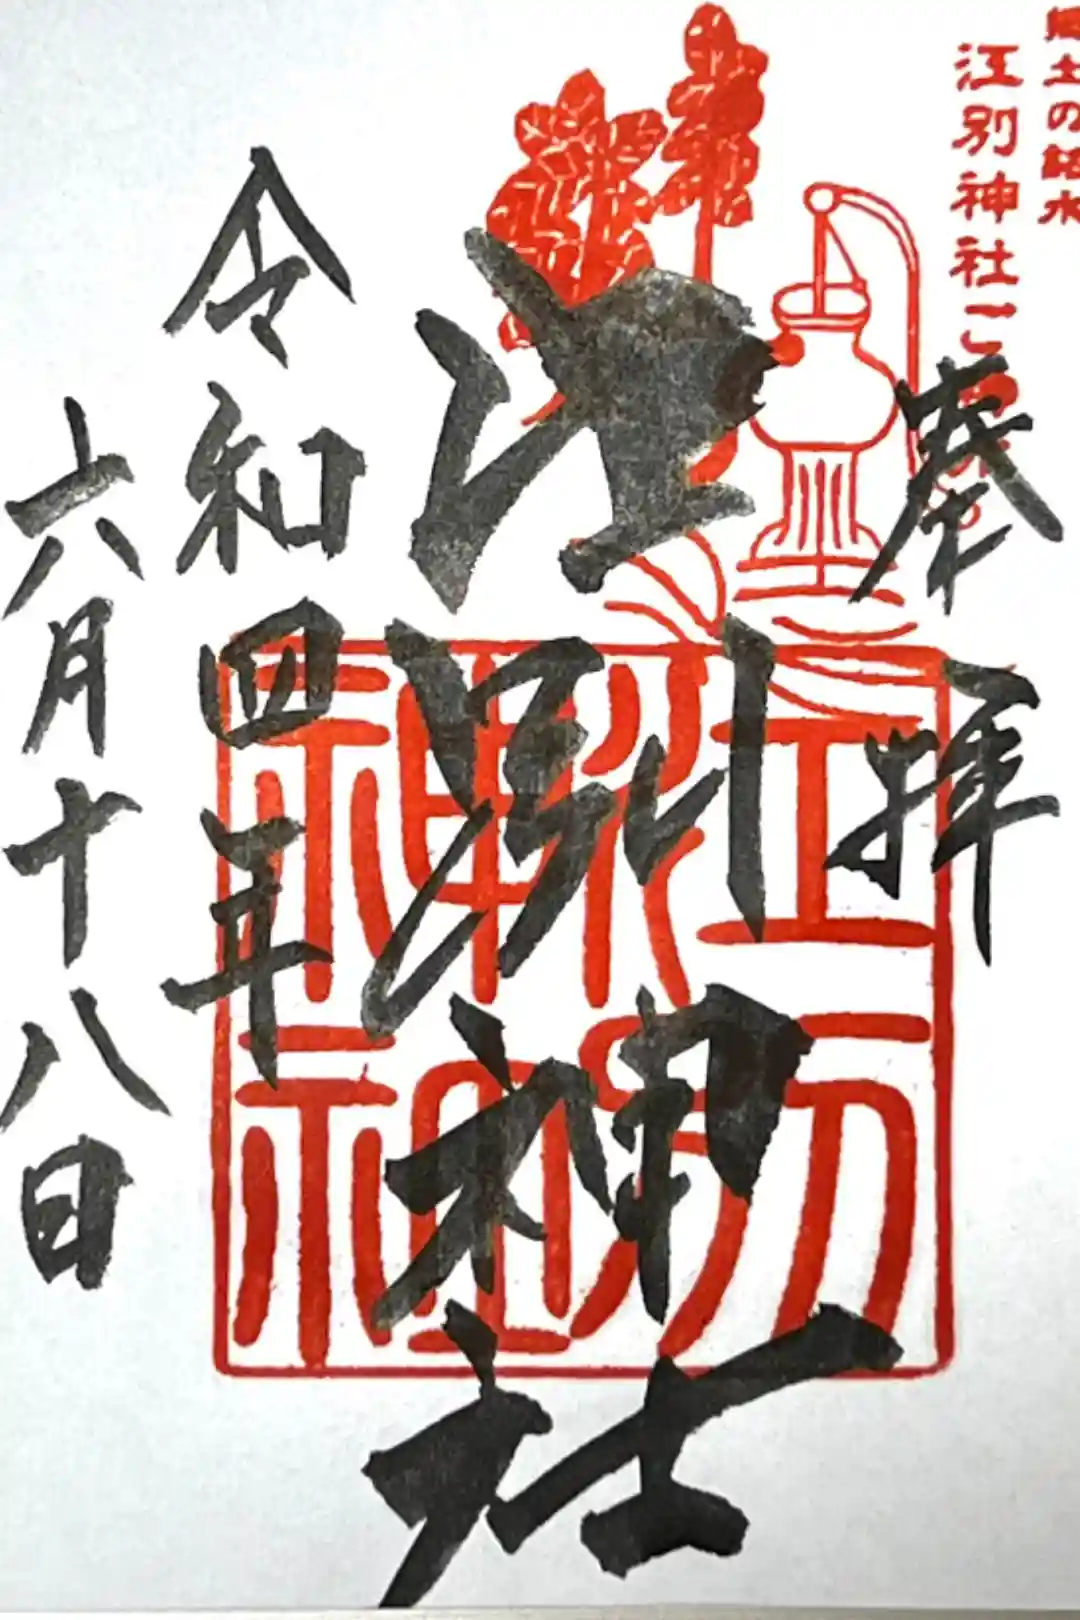 郷土の銘水
江別神社ご
奉拝
江別神社
江別神社
令和四年
六月十八日